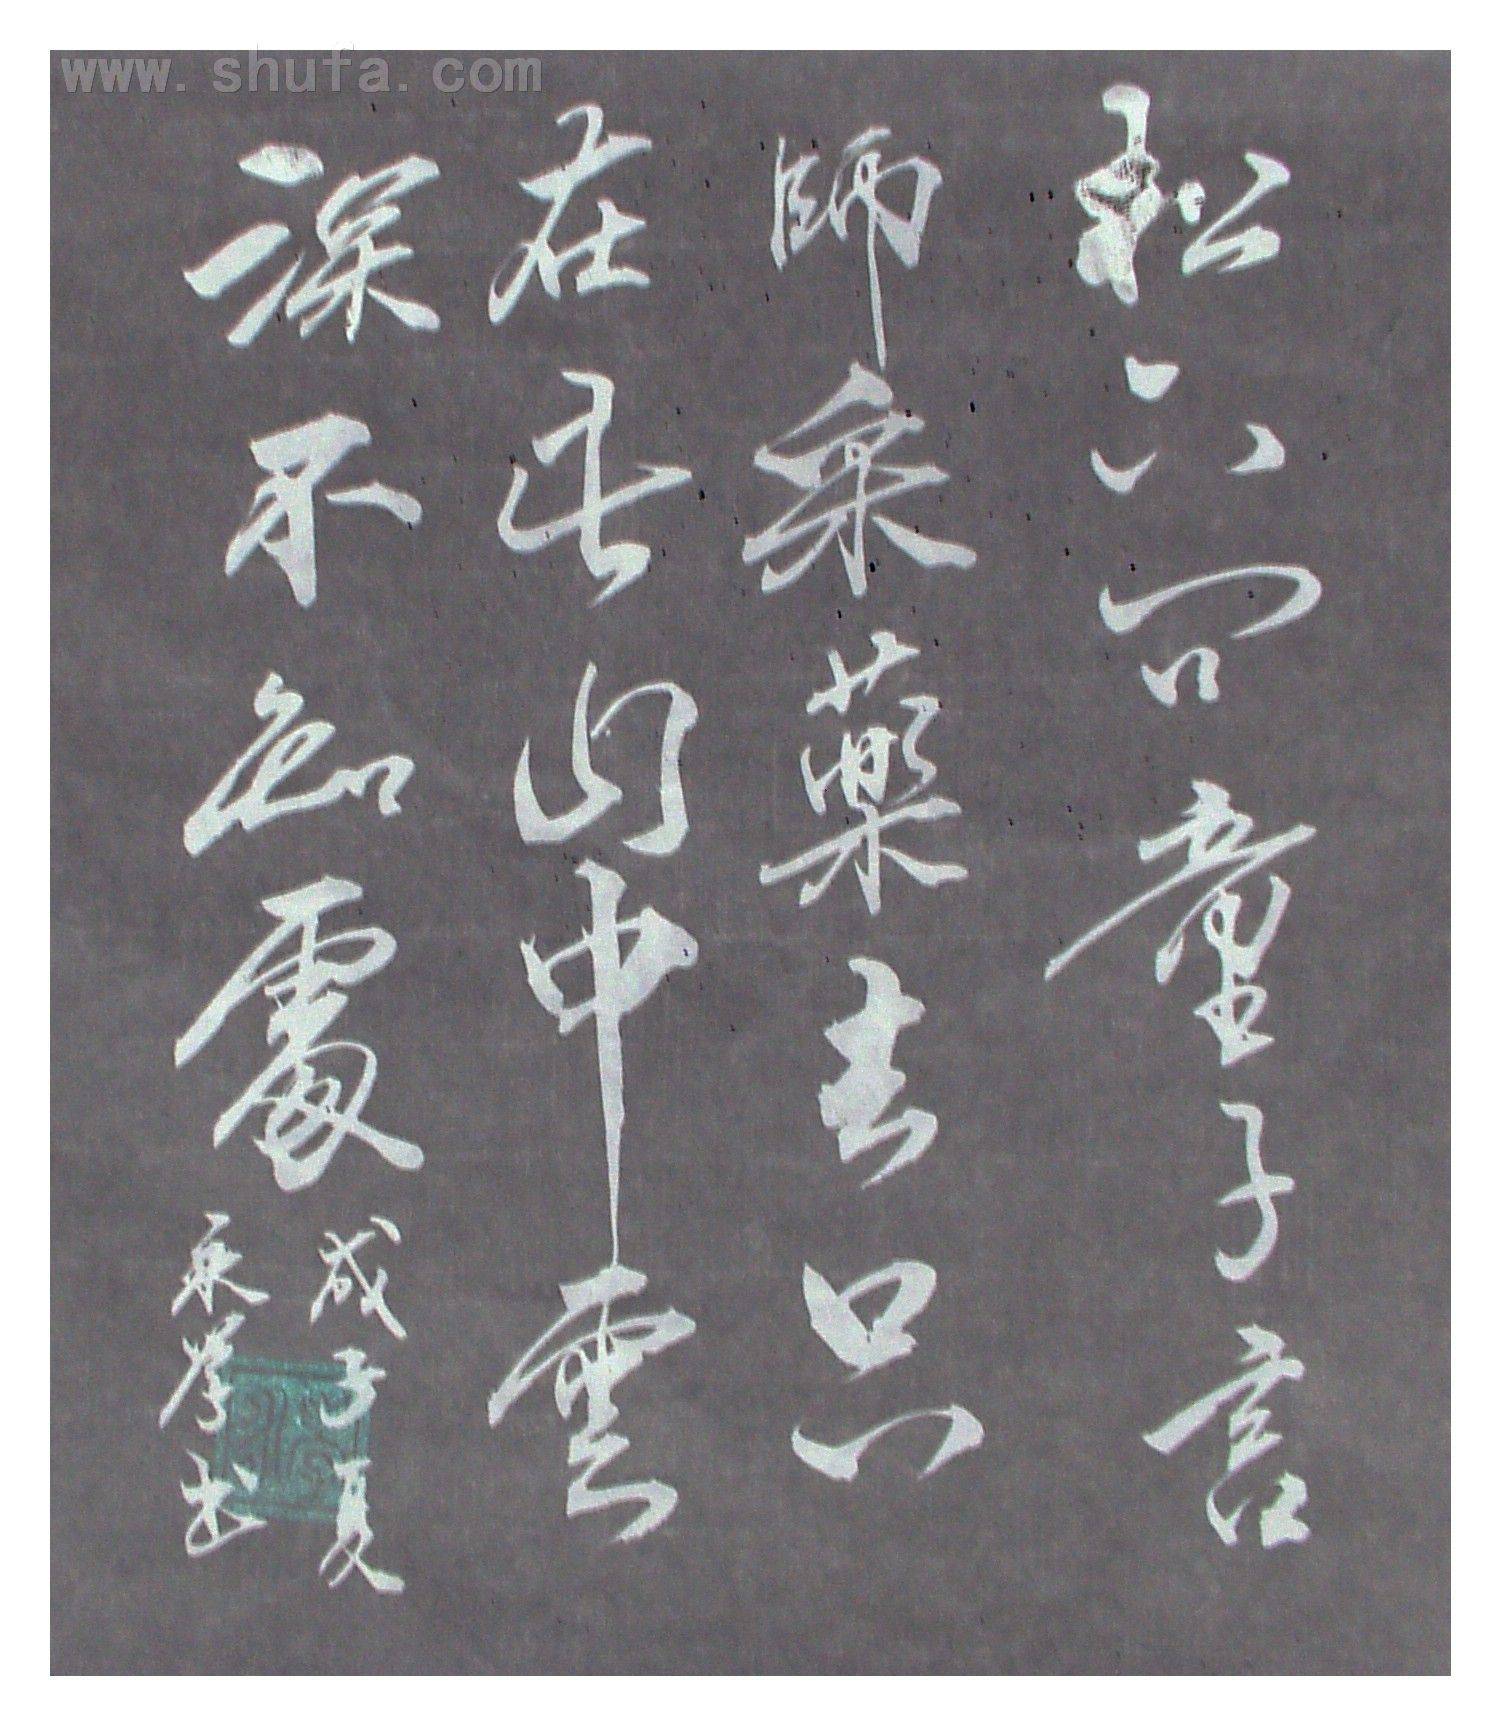 www.shufa.com
松下问童子言
師采藥去只
在此山中雲
深不知處
戊子夏
永学书